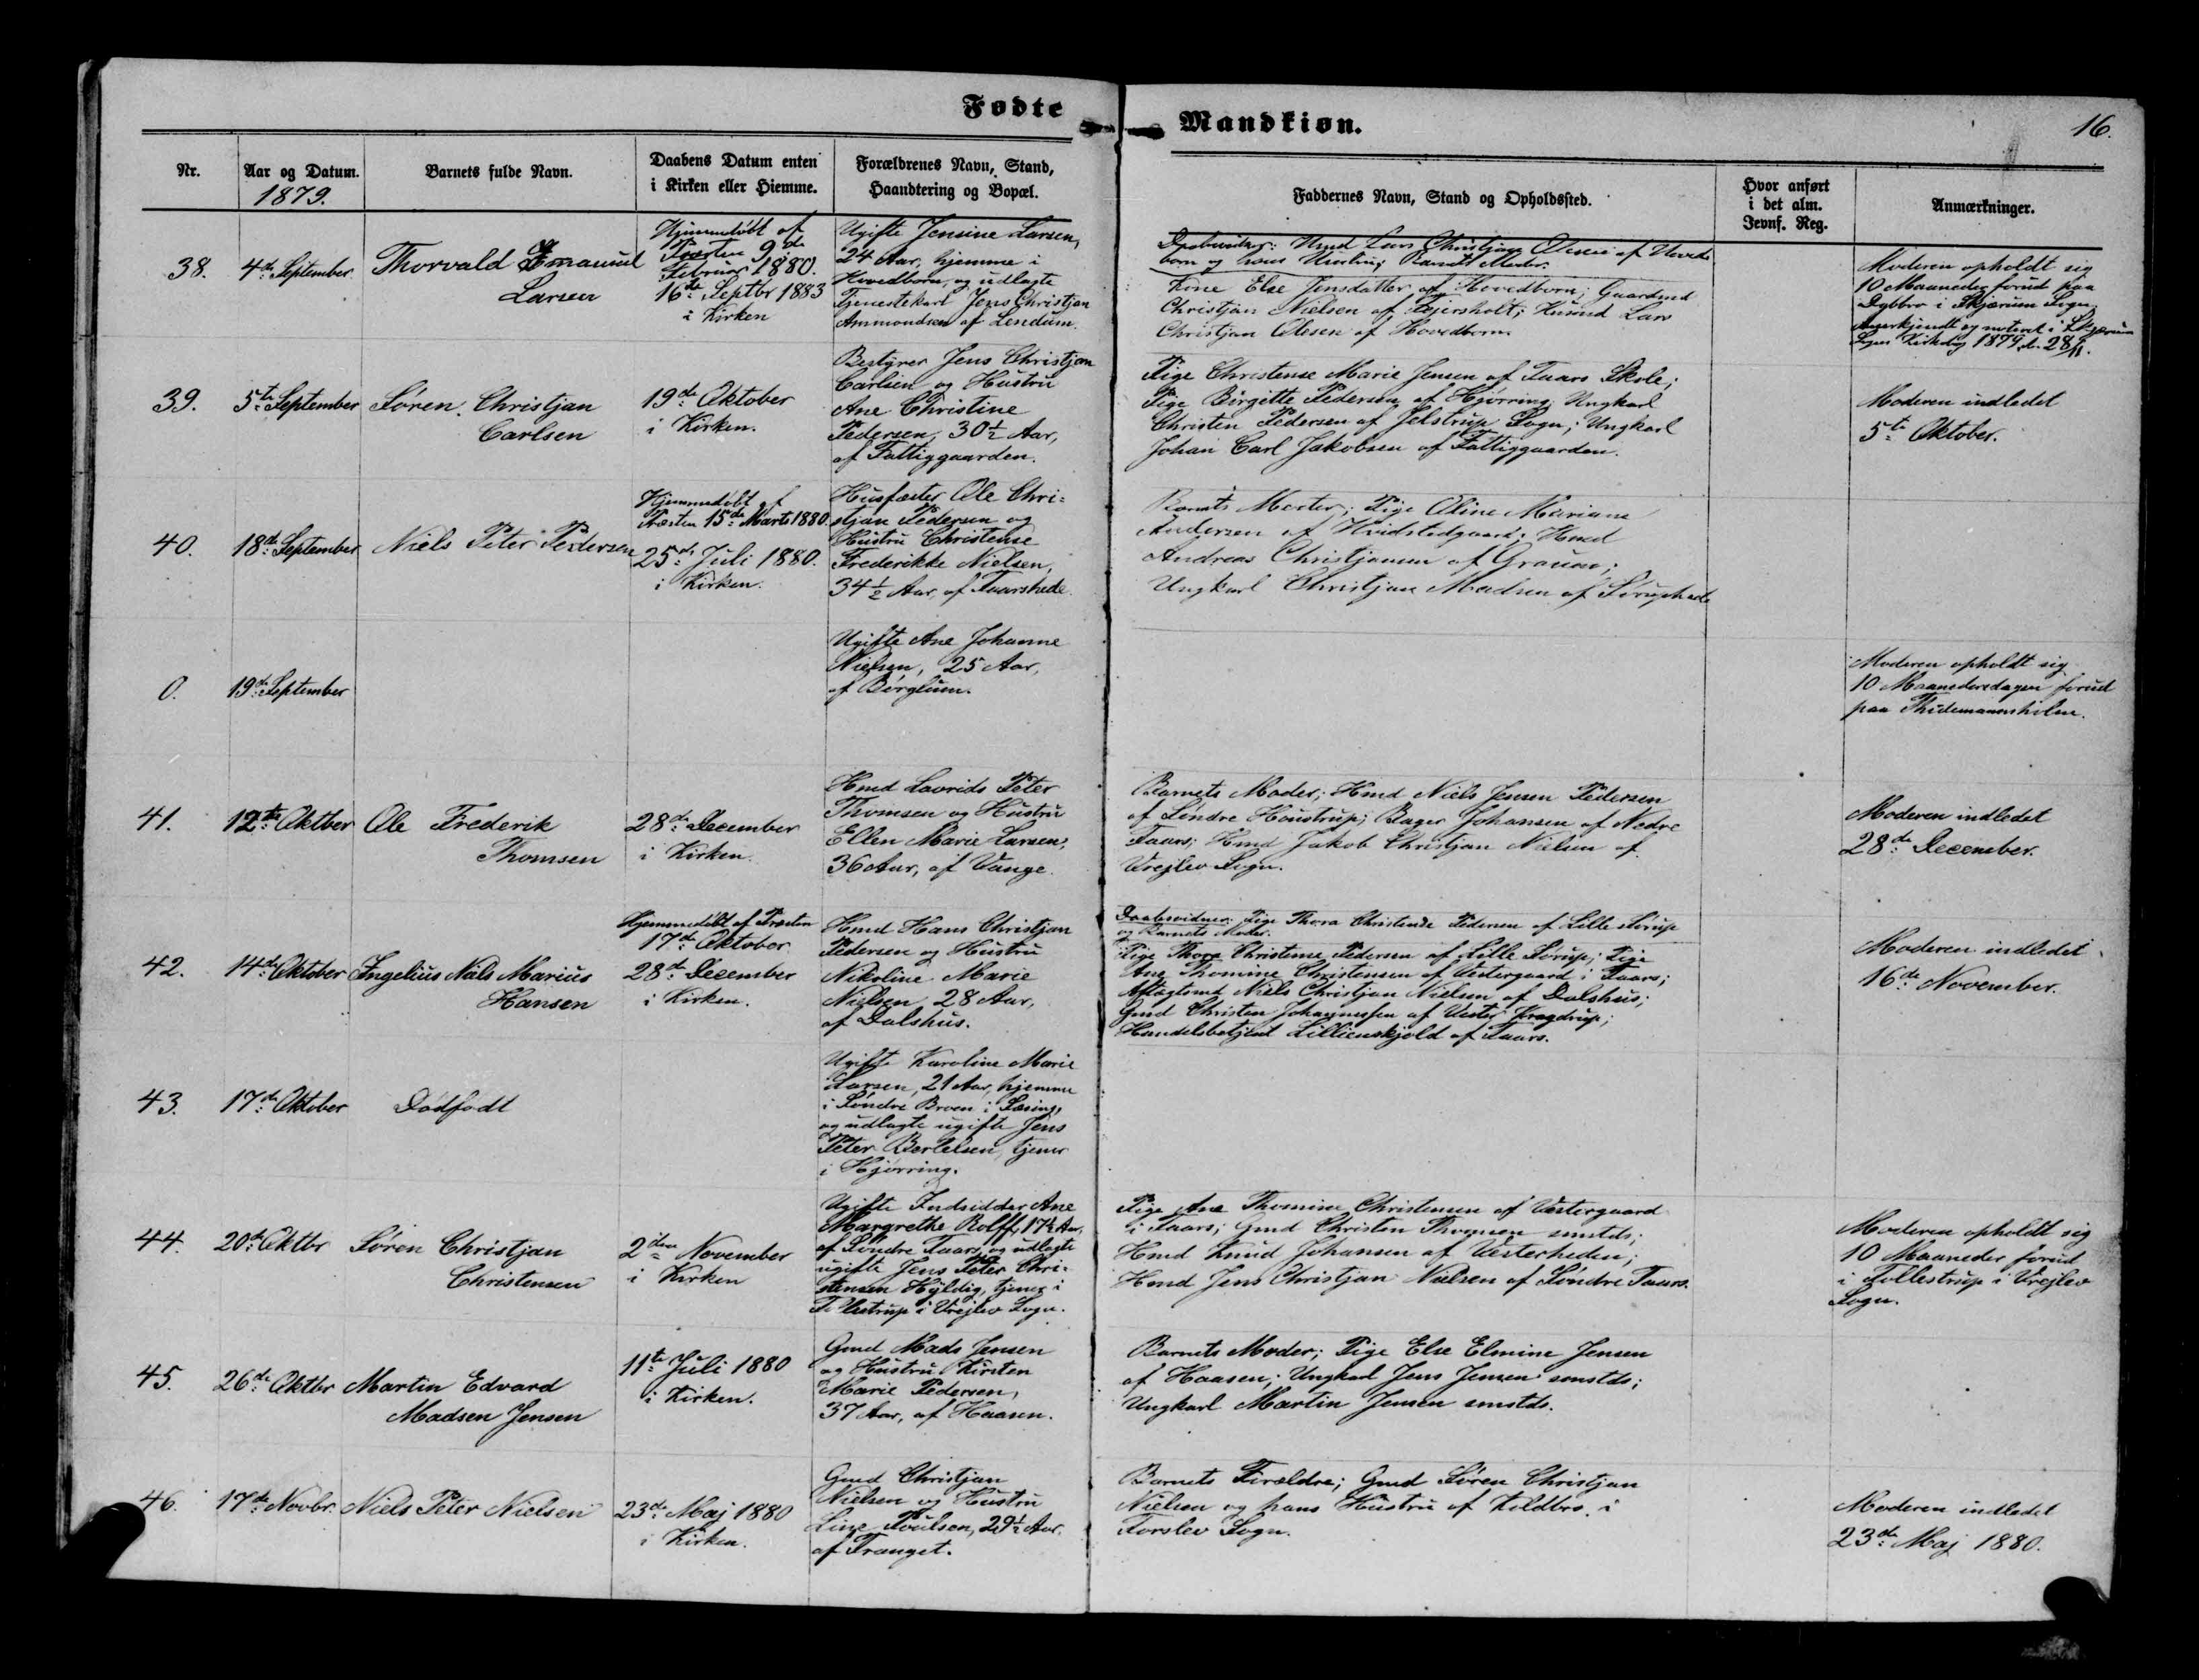 Fødte
Mandkiøn.
16.
Nr.
Aar og Datum.
1879.
Barnets fulde Navn.
Daabens Datum enten
i Kirken eller Hiemme.
Forældrenes Navn, Stand,
Haandtering og Bopæl.
Faddernes Navn, Stand og Opholdssted.
Hvor anført
i det alm.
Jevnf. Reg.
Anmærkninger.
38.
4de September
Thorvald Emanuel
Larsen
Hjemmedøbt af
Præsten 9de
Februar 1880.
16de Septbr 1883
i Kirken
Ugifte Jensine Larsen,
24 Aar, hjemme i
Hovedborn, og udlagte
Tjenestekarl Jens Christjan
Ammondsen af Lendum.
Daabsvidner: Hmd Lars Christjan Olesen af Hoved-
born og hans Hustru; Barnets Moder.
Kone Else Jensdatter af Hovedborn; Gaardmd
Christjan Nielsen af Fejersholt; Husmd Lars
Christjan Olesen af Hovedborn.
Moderen opholdt sig
10 Maaneder forud paa
Dybbro i Skjærum Sogn.
Anerkjendt og noteret i Skjærum
Sogns Kirkebog 1879 d. 28/11.
39.
5te September
Søren Christjan
Carlsen
19de Oktober
i Kirken.
Bestyrer Jens Christjan
Carlsen og Hustru
Ane Christine
Pedersen, 30½ Aar,
af Fattiggaarden.
Pige Christense Marie Jensen af Taars Skole;
Pige Birgitte Pedersen af Hjørring; Ungkarl
Christen Pedersen af Jelstrup Sogn; Ungkarl
Johan Carl Jakobsen af Fattiggaarden.
Moderen indledet
5te Oktober.
40.
18de September
Niels Peter Pedersen
Hjemmedøbt af
Præsten 15de Marts 1880.
25de Juli 1880.
i Kirken.
Husfæster Ole Chri-
stjan Pedersen og
Hustru Christense
Frederikke Nielsen,
34½ Aar, af Taarshede.
Barnets Moder; Pige Oline Mariane
Andersen af Hvidstedgaard; Hmd
Andreas Christjansen af Grauen;
Ungkarl Christjan Madsen af Søruphede
0.
19de September
Ugifte Ane Johanne
Nielsen, 25 Aar,
af Børglum.
Moderen opholdt sig
10 Maanedersdagen forud
paa Thidemannsholm.
41.
12te Oktber
Ole Frederik
Thomsen
28de December
i Kirken.
Hmd Lavrids Peter
Thomsen og Hustru
Ellen Marie Larsen,
36 Aar, af Vange.
Barnets Moder; Hmd Niels Jensen Pedersen
af Søndre Houstrup; Bager Johansen af Nedre
Taars; Hmd Jakob Christjan Nielsen af
Vrejlev Sogn.
Moderen indledet
28de December.
42.
14de Oktober
Ingelius Nals Marius
Hansen
Hjemmedøbt af Præsten
17de Oktober
28de December
i Kirken.
Hmd Hans Christjan
Pedersen og Hustru
Nikoline Marie
Nielsen, 28 Aar,
af Dalshus.
Daabsvidner: Pige Thora Christense Pedersen af Lille Sørup
og Barnets Moder.
Pige Thora Christense Pedersen af Lille Sørup; Pige
Ane Thomine Christensen af Vestergaard i Taars;
Aftagtsmd Niels Christjan Nielsen af Dalshus;
Gmd Christen Johannessen af Vester Kragdrup;
Handelsbetjent Lillienskjold af Taars.
Moderen indledet
16de November.
43.
17de Oktober
Dødfødt
Ugifte Karoline Marie
Larsen, 21 Aar, hjemme
i Søndre Broen i Sæsing,
og udlagte ugifte Jens
Peter Bertelsen, tjener
i Hjørring.
44.
20de Oktbr
Søren Christjan
Christensen
2den November
i Kirken
Ugifte Indsidder Ane
Margrethe Rolff, 17½ Aar,
af Søndre Taars, og udlagte
ugifte Jens Peter Chri-
stensen Hyldig, tjener i
Follestrup i Vrejlev Sogn.
Pige Ane Thomine Christensen af Vestergaard
i Taars; Gmd Christen Thomsen smstds;
Hmd Knud Johansen af Vesterheden;
Hmd Jens Christjan Nielsen af Søndre Taars.
Moderen opholdt sig
10 Maaneder forud
i Follestrup i Vrejlev
Sogn.
45.
26de Oktbr
Martin Edvard
Madsen Jensen
11te Juli 1880
i Kirken.
Gmd Mads Jensen
og Hustru Kirsten
Marie Pedersen,
37 Aar, af Haasen.
Barnets Moder; Pige Else Elmine Jensen
af Haasen; Ungkarl Jens Jensen smstds;
Ungkarl Martin Jensen smstds.
46.
17de Novbr.
Niels Peter Nielsen
23de Maj 1880
i Kirken.
Gmd Christjan
Nielsen og Hustru
Line Poulsen, 29½ Aar,
af Tranget.
Barnets Forældre; Gmd Søren Christjan
Nielsen og hans Hustru af Koldbro i
Torslev Sogn.
Moderen indledet
23de Maj 1880.